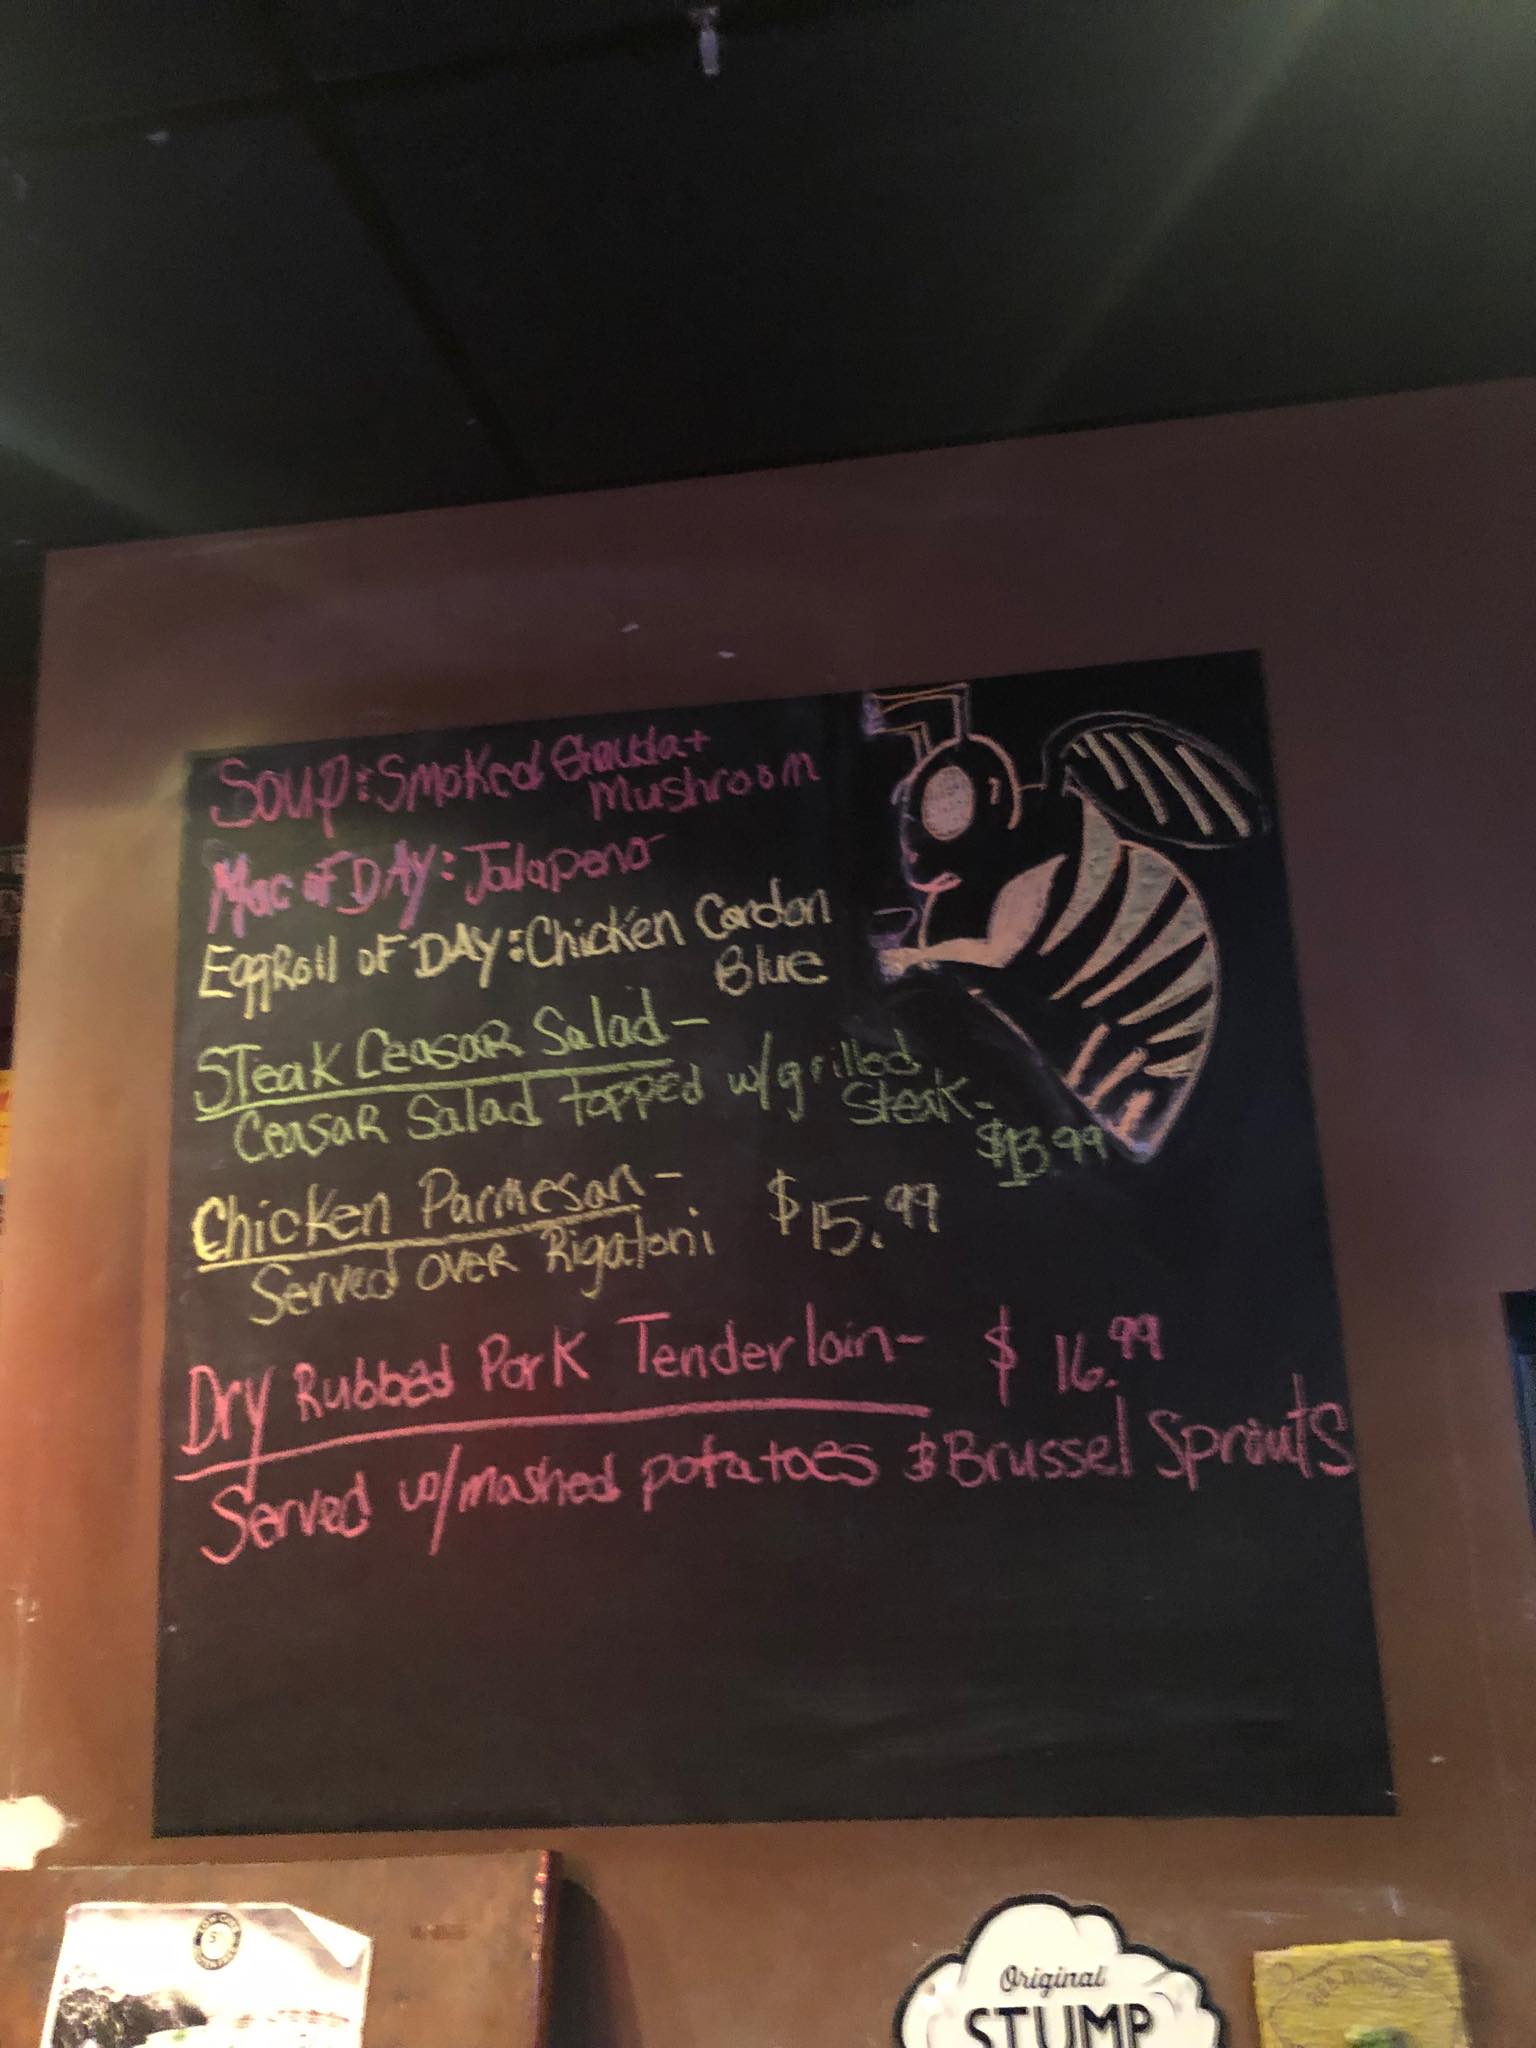 Soup: Smoked Gouda +
Mushroom
Mac of DAY: Jalapeno
EggRoll of DAY: Chicken Cordon
Blue
STeak Ceasar Salad -
Ceasar Salad topped w/grilled
Steak -
$13.99
Chicken Parmesan - $15.99
Served over Rigatoni
Dry Rubbed Pork Tenderloin - $16.99
Served w/mashed potatoes & Brussel Sprouts
Original
STUMP